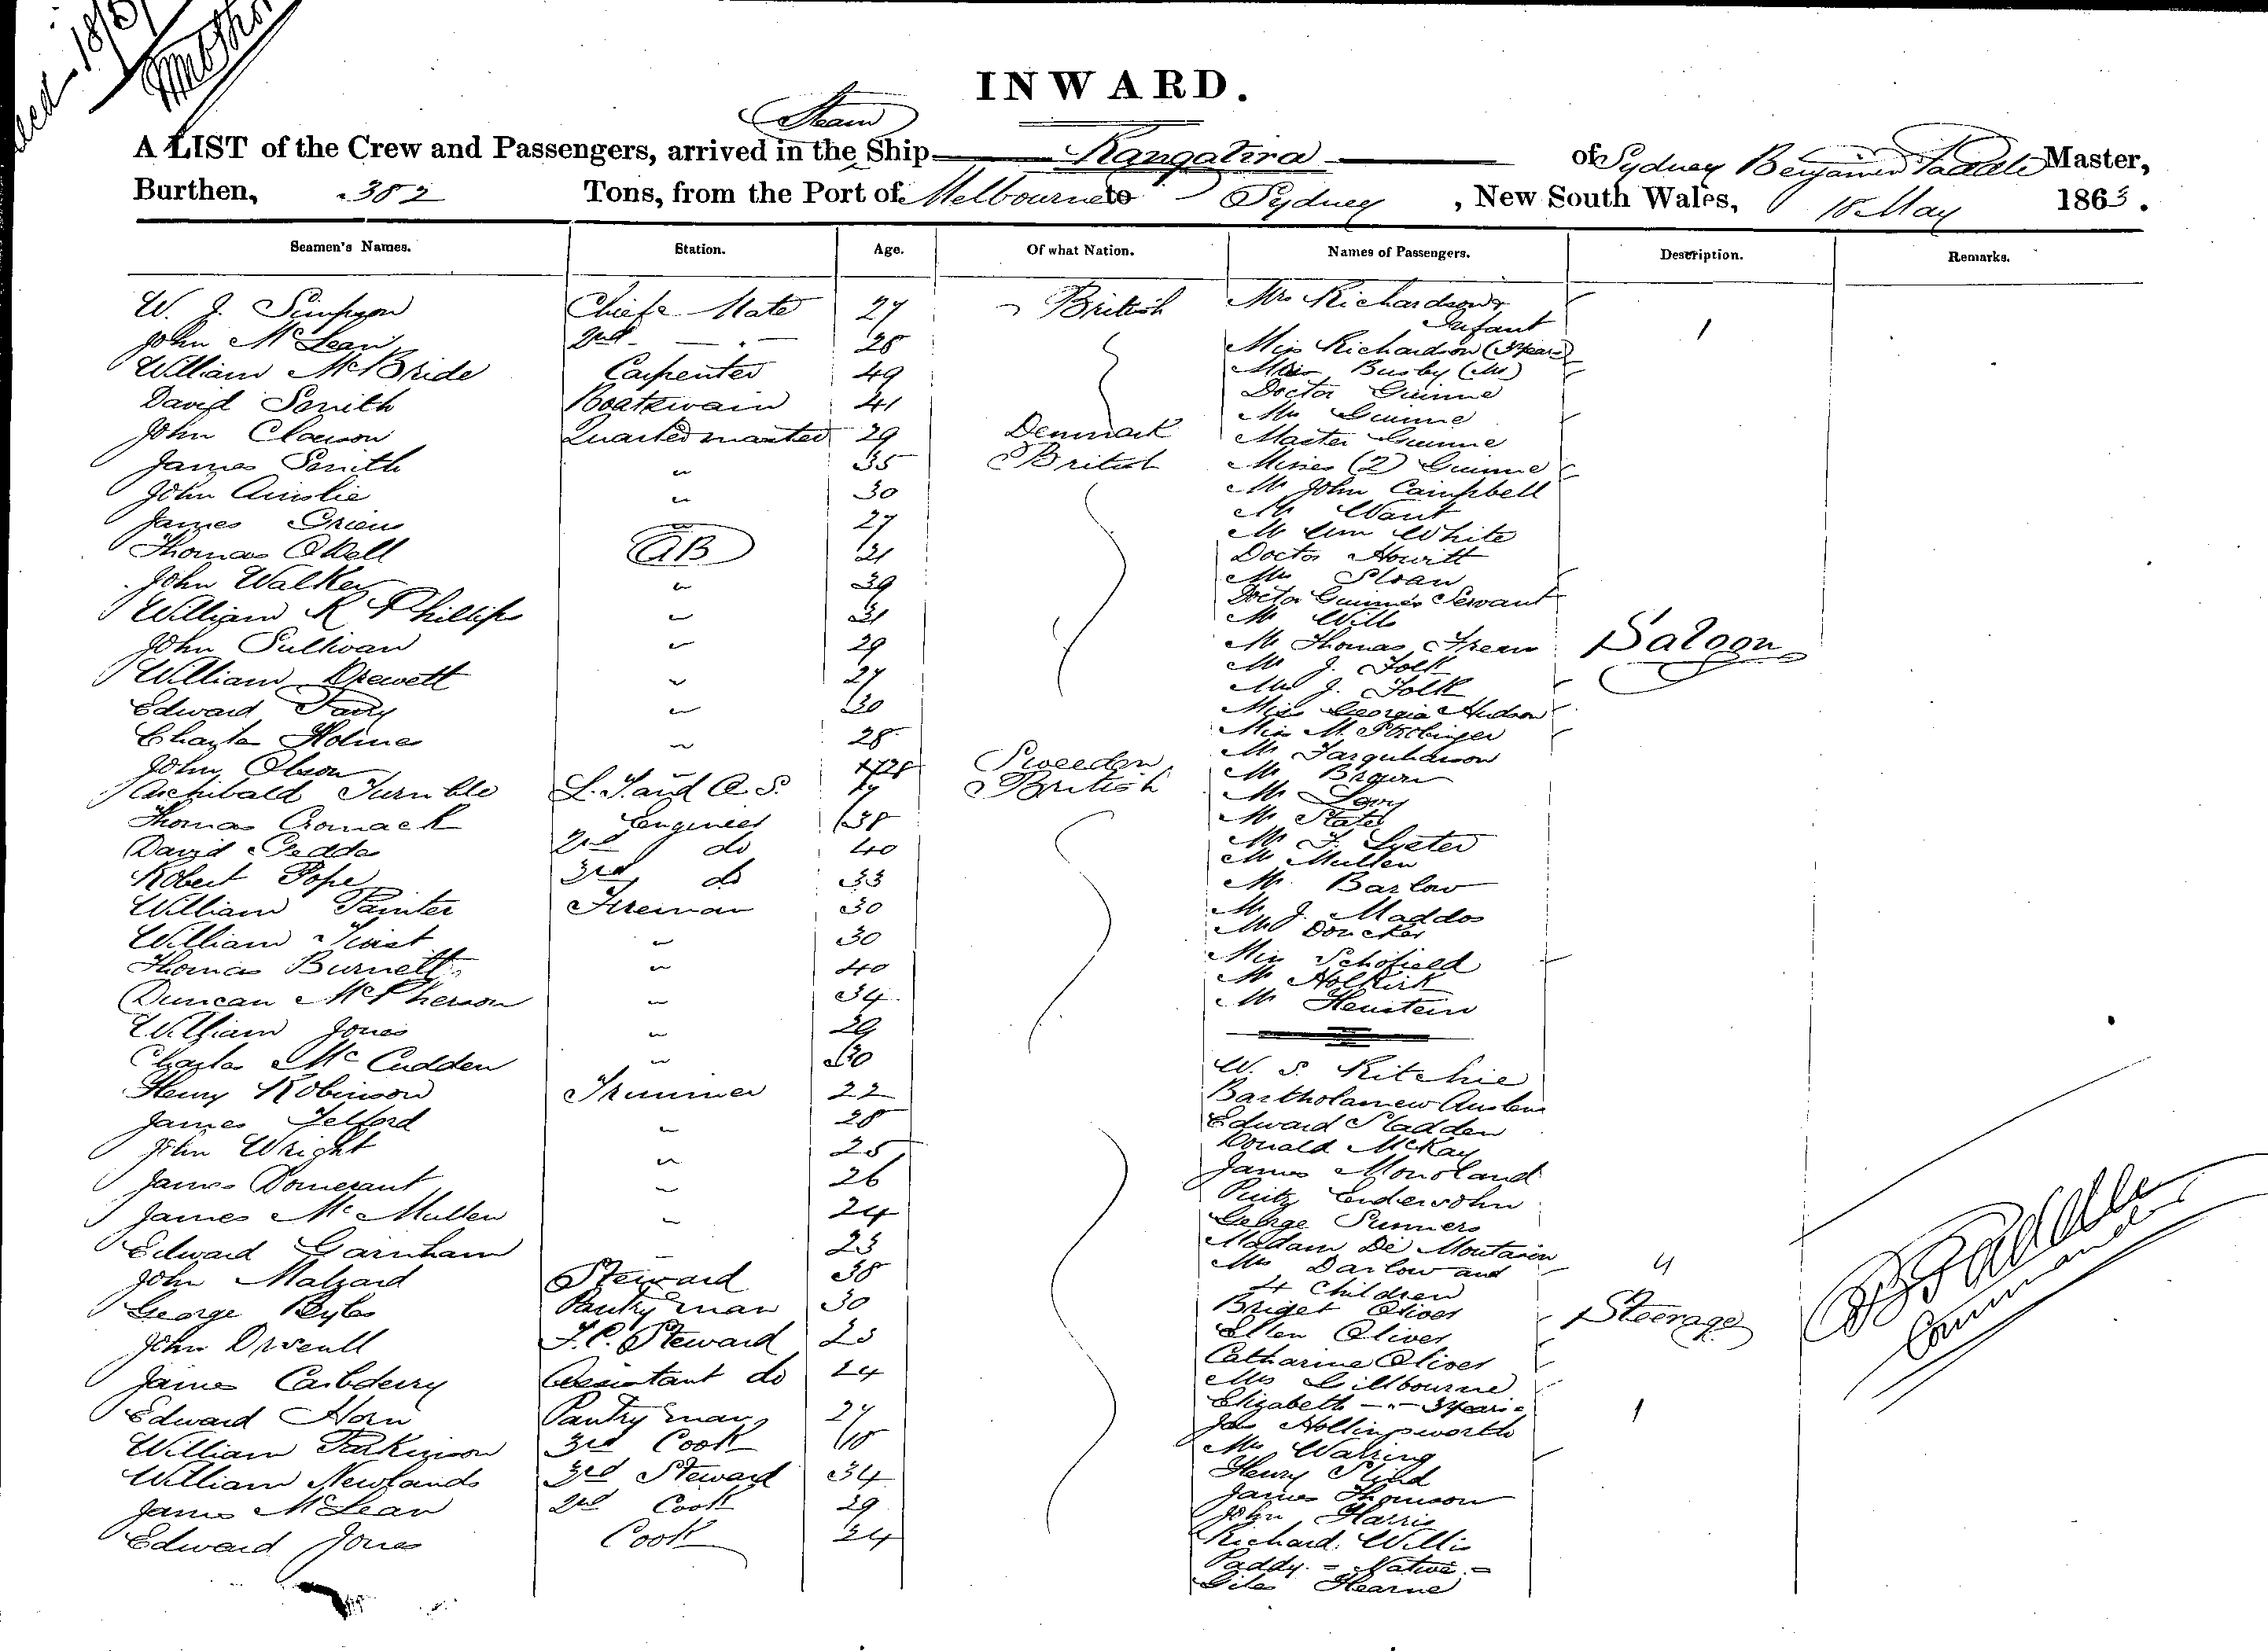 INWARD.
Steam
A LIST of the Crew and Passengers, arrived in the Ship Rangatira of Sydney Benjamin Paddle Master,
Burthen, 382 Tons, from the Port of Melbourne to Sydney, New South Wales, 18 May 1863.
Seamen's Names. Station. Age. Of what Nation. Names of Passengers. Description. Remarks.
W. J. Simpson Chief Mate 27 British Mrs Richardson &
Infant 1
John McLean 2nd 28 Miss Richardson (3 years)
William McBride Carpenter 49 Busby
David Smith Boatswain 41 Doctor
John Clawson Quartermaster 29 Denmark Master
James Smith " 35 British Misses (2)
John Ainslie " 30 Mr John Campbell
James " 27 Mr Want
Thomas Odell AB 21 Mr Wm White
Doctor Howitt
John Walker " 39 Sloan
Doctor Servant
William R Phillips " 31 Mr Wills
John Sullivan " 29 Mr Thomas Saloon
William Drewett " 27 Mr J. Folk
J. Folk
Edward " 30 Miss Georgia Hudson
Charles Holmes " 28 Miss M.
Mr Farquharson
John Olson " 28 Sweeden Mr Brown
Archibald Turnble L. T. and O. S. 17 British Mr Levy
Thomas Cromack Engineer 38 Mr
David Geddes 2nd do 40 Mr F. Lyster
Mr Mullen
Robert Pope 3rd do 33 Mr. Barlow
William Painter Fireman 30 Mr J. Maddos
Doucker
William Twist " 30
Thomas Burnett " 40 Miss Schofield
Mr Holkirk
Duncan McPherson " 34 Mr Henstein
William Jones " 29
Charles McCudden " 30 W. S. Ritchie
Henry Robinson Trimmer 22 Bartholamew
James Telford " 28 Edward Sladden
John Wright " 25 Donald McKay
James Pomerant " 26 James
James McMullen " 24 George Sumners
Edward Garnham " 23 Madam De
John Malzard Steward 38 Mrs Barlow and
4 Children 4
George Pantry man 30 Briget Oliver Steerage
John F.C. Steward Ellen Oliver
Catharine Oliver
James Carbderry Assistant do 24 Mrs Gillbourne
Edward Horn Pantry man 27 Elizabeth " 3 years 1
Jas Hollingsworth
William Parkinson 3rd Cook 18 Mrs Watring
William Newlands 3rd Steward 34 Henry
James McLean 2nd Cook 29 James Thomson
John Harris
Edward Jones Cook 24 Richard Willis
Paddy. = Native. =
Giles Hearne
B Paddle
Commander